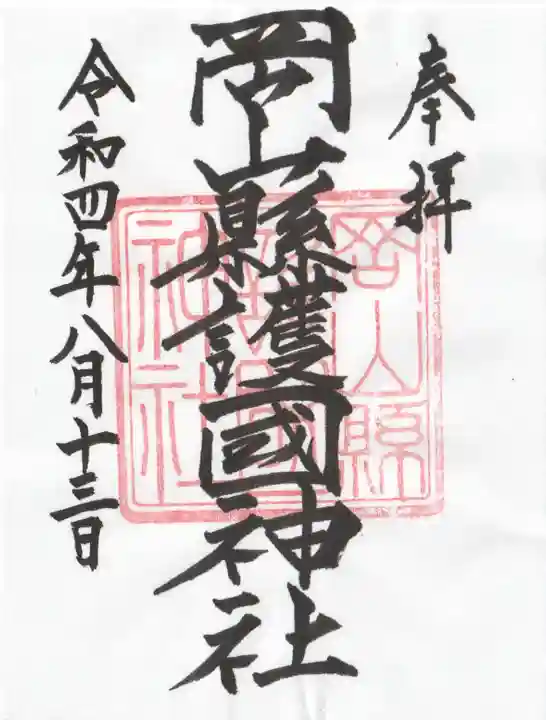 奉拝
岡山縣護國神社
岡山縣
護國
神社
令和四年八月十三日